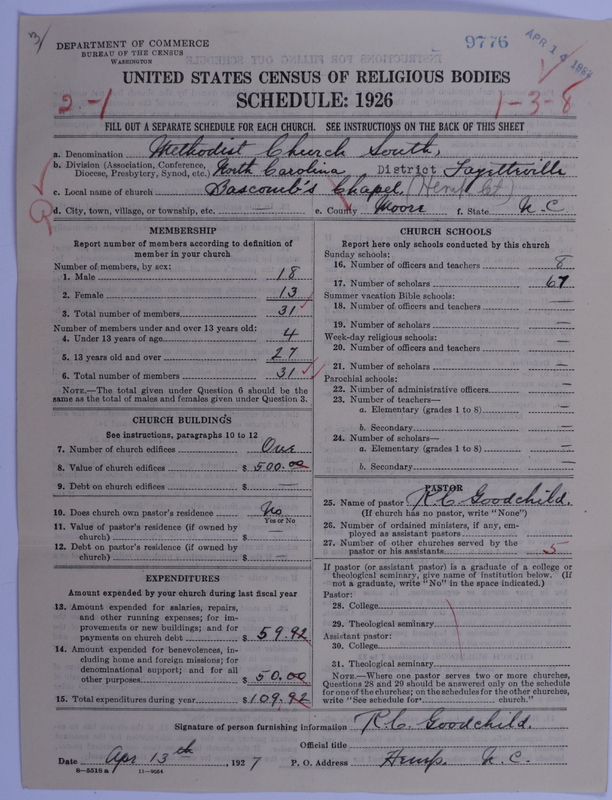 DEPARTMENT OF COMMERCE
BUREAU OF THE CENSUS
WASHINGTON
9776
APR 14
UNITED STATES CENSUS OF RELIGIOUS BODIES
SCHEDULE: 1926
2-1
1-3-8
FILL OUT A SEPARATE SCHEDULE FOR EACH CHURCH. SEE INSTRUCTIONS ON THE BACK OF THIS SHEET
a. Denomination Methodist Church South,
b. Division (Association, Conference, Diocese, Presbytery, Synod, etc.) North Carolina District Fayettville
c. Local name of church Bascomb's Chapel,
d. City, town, village, or township, etc. — e. County Moore f. State N. C
MEMBERSHIP
Report number of members according to definition of
member in your church
Number of members, by sex:
1. Male 18
2. Female 13
3. Total number of members 31
Number of members under and over 13 years old:
4. Under 13 years of age 4
5. 13 years old and over 27
6. Total number of members 31
NOTE.—The total given under Question 6 should be the
same as the total of males and females given under Question 3.
CHURCH BUILDINGS
See instructions, paragraphs 10 to 12
7. Number of church edifices One
8. Value of church edifices $ 500.00
9. Debt on church edifices $ —
10. Does church own pastor's residence? No
Yes or No
11. Value of pastor's residence (if owned by
church) $ —
12. Debt on pastor's residence (if owned by
church) $ —
EXPENDITURES
Amount expended by your church during last fiscal year
13. Amount expended for salaries, repairs,
and other running expenses; for im-
provements or new buildings; and for
payments on church debt $ 59.92
14. Amount expended for benevolences, in-
cluding home and foreign missions; for
denominational support; and for all
other purposes $ 50.00
15. Total expenditures during year $ 109.92
CHURCH SCHOOLS
Report here only schools conducted by this church
Sunday schools:
16. Number of officers and teachers 8
17. Number of scholars 67
Summer vacation Bible schools:
18. Number of officers and teachers —
19. Number of scholars —
Week-day religious schools:
20. Number of officers and teachers —
21. Number of scholars —
Parochial schools:
22. Number of administrative officers —
23. Number of teachers—
a. Elementary (grades 1 to 8) —
b. Secondary —
24. Number of scholars—
a. Elementary (grades 1 to 8) —
b. Secondary —
PASTOR
25. Name of pastor R. C. Goodchild.
(If church has no pastor, write "None")
26. Number of ordained ministers, if any, em-
ployed as assistant pastors
27. Number of other churches served by the
pastor or his assistants 5
If pastor (or assistant pastor) is a graduate of a college or
theological seminary, give name of institution below. (If
not a graduate, write "No" in the space indicated.)
Pastor:
28. College
29. Theological seminary
Assistant pastor:
30. College
31. Theological seminary
NOTE.—Where one pastor serves two or more churches,
Questions 28 and 29 should be answered only on the schedule
for one of the churches; on the schedules for the other churches,
write "See schedule for church."
Signature of person furnishing information R. C. Goodchild.
Official title
Date Apr 13th, 1927 P. O. Address Hemp. N. C.
8—5518 a 11—9054